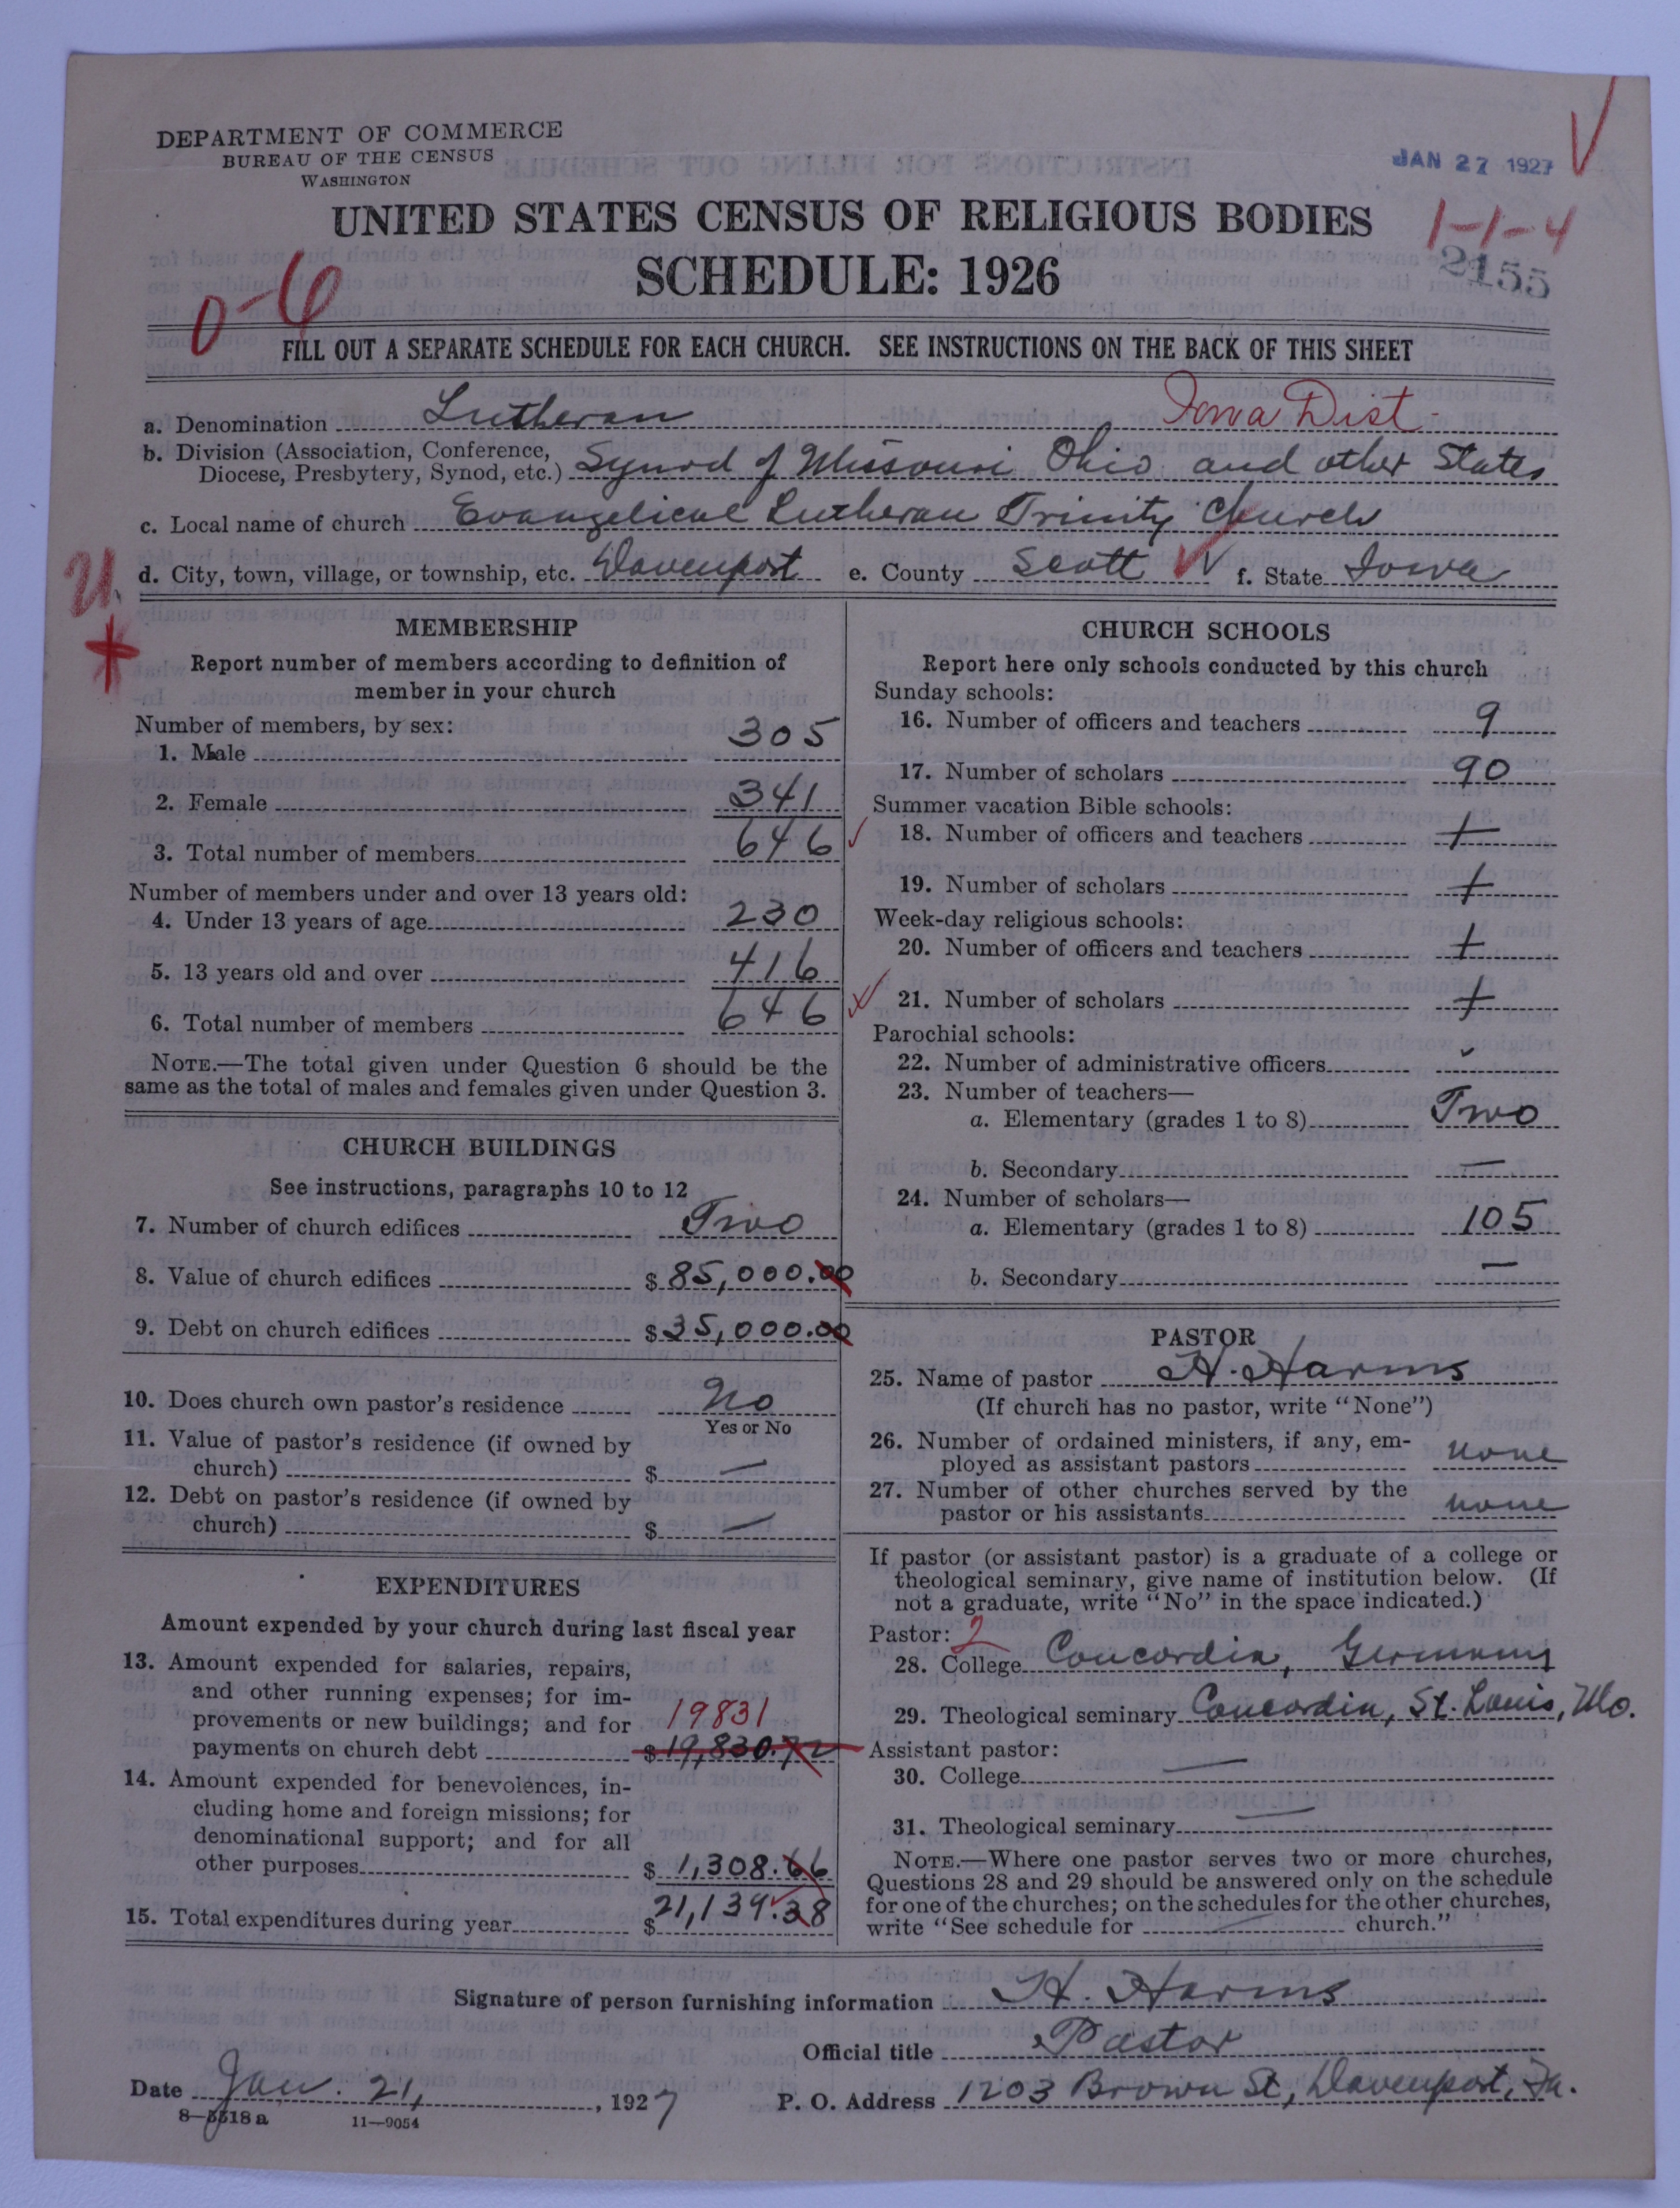 DEPARTMENT OF COMMERCE
BUREAU OF THE CENSUS
WASHINGTON
JAN 27 1927
UNITED STATES CENSUS OF RELIGIOUS BODIES
1-1-4
SCHEDULE: 1926
2155
0-6
FILL OUT A SEPARATE SCHEDULE FOR EACH CHURCH. SEE INSTRUCTIONS ON THE BACK OF THIS SHEET
a. Denomination Lutheran Iowa Dist.
b. Division (Association, Conference,
Diocese, Presbytery, Synod, etc.) Synod of Missouri Ohio and other States
c. Local name of church Evangelical Lutheran Trinity Church
d. City, town, village, or township, etc. Davenport e. County Scott f. State Iowa
U.
MEMBERSHIP
Report number of members according to definition of
member in your church
Number of members, by sex:
1. Male 305
2. Female 341
3. Total number of members 646
Number of members under and over 13 years old:
4. Under 13 years of age 230
5. 13 years old and over 416
6. Total number of members 646
NOTE.—The total given under Question 6 should be the
same as the total of males and females given under Question 3.
CHURCH BUILDINGS
See instructions, paragraphs 10 to 12
7. Number of church edifices Two
8. Value of church edifices $ 85,000.00
9. Debt on church edifices $ 35,000.00
10. Does church own pastor's residence No
Yes or No
11. Value of pastor's residence (if owned by
church) $ —
12. Debt on pastor's residence (if owned by
church) $ —
EXPENDITURES
Amount expended by your church during last fiscal year
13. Amount expended for salaries, repairs,
and other running expenses; for im-
provements or new buildings; and for 19831
payments on church debt $ 19,830.72
14. Amount expended for benevolences, in-
cluding home and foreign missions; for
denominational support; and for all
other purposes $ 1,308.66
15. Total expenditures during year $ 21,139.38
CHURCH SCHOOLS
Report here only schools conducted by this church
Sunday schools:
16. Number of officers and teachers 9
17. Number of scholars 90
Summer vacation Bible schools:
18. Number of officers and teachers +
19. Number of scholars +
Week-day religious schools:
20. Number of officers and teachers +
21. Number of scholars +
Parochial schools:
22. Number of administrative officers
23. Number of teachers—
a. Elementary (grades 1 to 8) Two
b. Secondary —
24. Number of scholars—
a. Elementary (grades 1 to 8) 105
b. Secondary —
PASTOR
25. Name of pastor H. Harms
(If church has no pastor, write "None")
26. Number of ordained ministers, if any, em-
ployed as assistant pastors none
27. Number of other churches served by the
pastor or his assistants none
If pastor (or assistant pastor) is a graduate of a college or
theological seminary, give name of institution below. (If
not a graduate, write "No" in the space indicated.)
Pastor: 2
28. College Concordia, Germany
29. Theological seminary Concordia, St. Louis, Mo.
Assistant pastor:
30. College —
31. Theological seminary —
NOTE.—Where one pastor serves two or more churches,
Questions 28 and 29 should be answered only on the schedule
for one of the churches; on the schedules for the other churches,
write "See schedule for — church."
Signature of person furnishing information H. Harms
Official title Pastor
Date Jan. 21, 1927 P. O. Address 1203 Brown St, Davenport, Ia.
8—5518a 11—9054